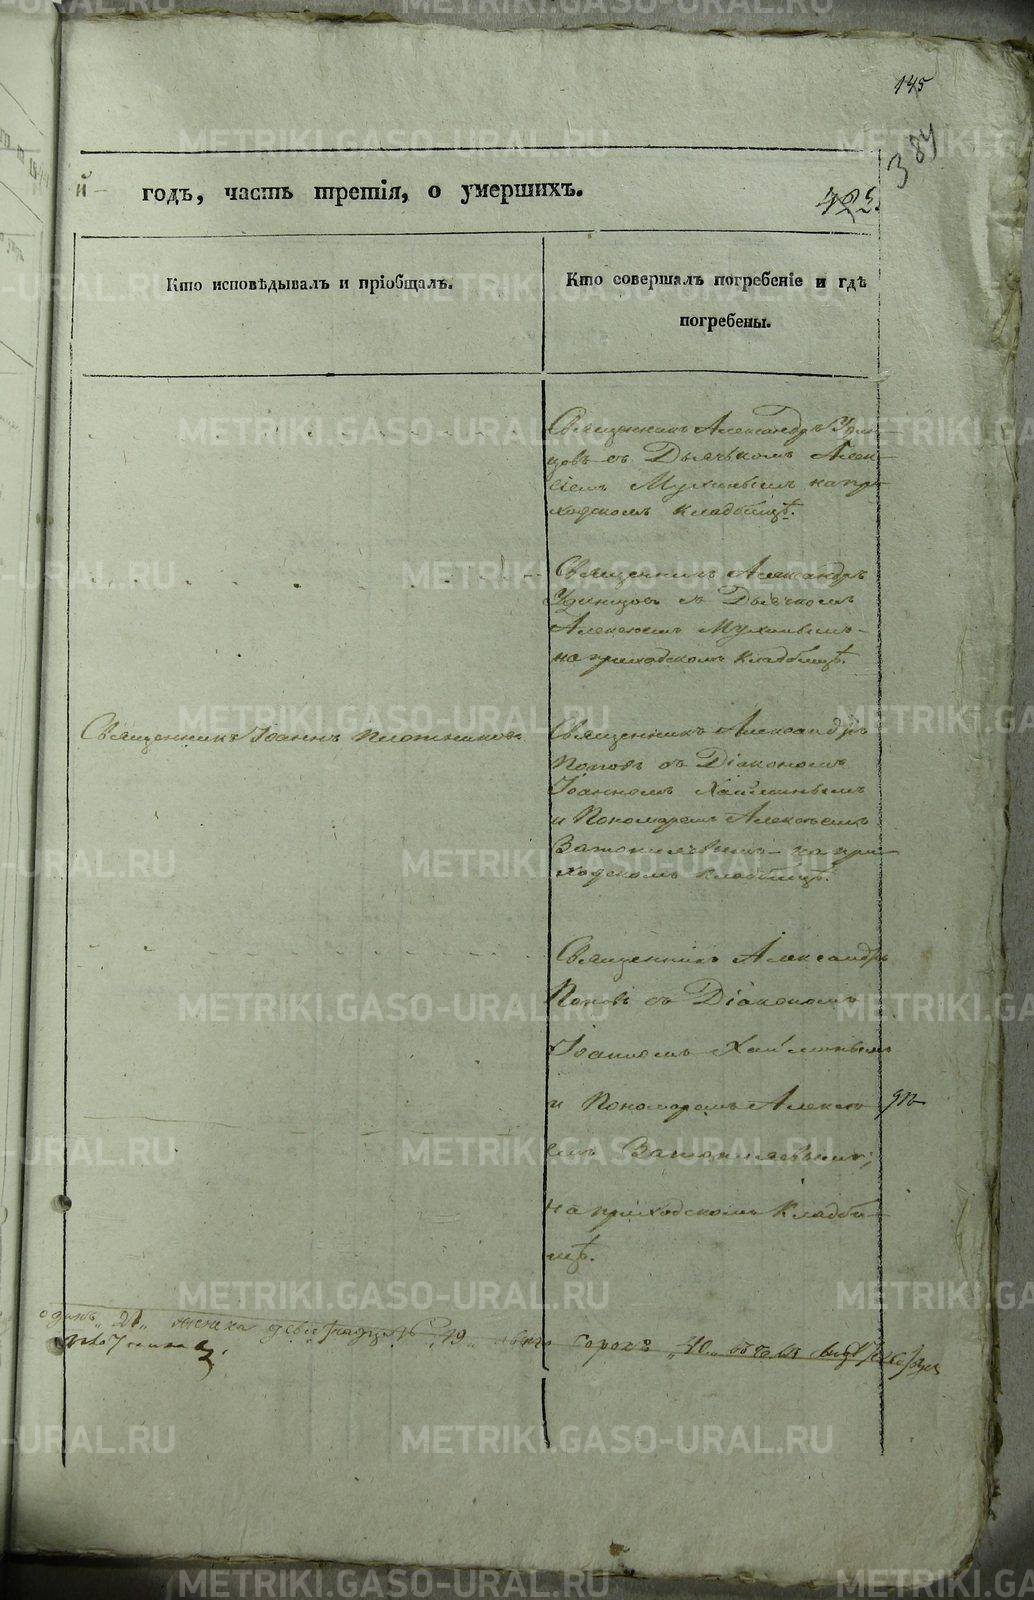 145
384
й
годъ, часть третія, о умершихъ.
422.
Кто исповѣдывалъ и пріобщалъ.
Кто совершалъ погребеніе и гдѣ
погребены.
Священникъ Александръ Удин-
цовъ съ Дьячкомъ Алек-
сіемъ Мухинымъ на при-
ходскомъ кладбищѣ.
Священникъ Александръ
Удинцовъ съ Дьячкомъ
Алексіемъ Мухинымъ
на приходскомъ кладбищѣ.
Священникъ Іоаннъ Плотниковъ
Священникъ Александръ
Поповъ съ Діакономъ
Іоанномъ
и Пономаремъ Алексѣемъ
на при-
ходскомъ кладбищѣ.
Священникъ Александръ
Поповъ съ Діакономъ
Іоанномъ
и Пономаремъ Алексѣ
емъ
на приходскомъ кладби-
щѣ.
одинъ „21„ женска девятнадцать „19„ сорокъ „40„ обоего
METRIKI.GASO-URAL.RU